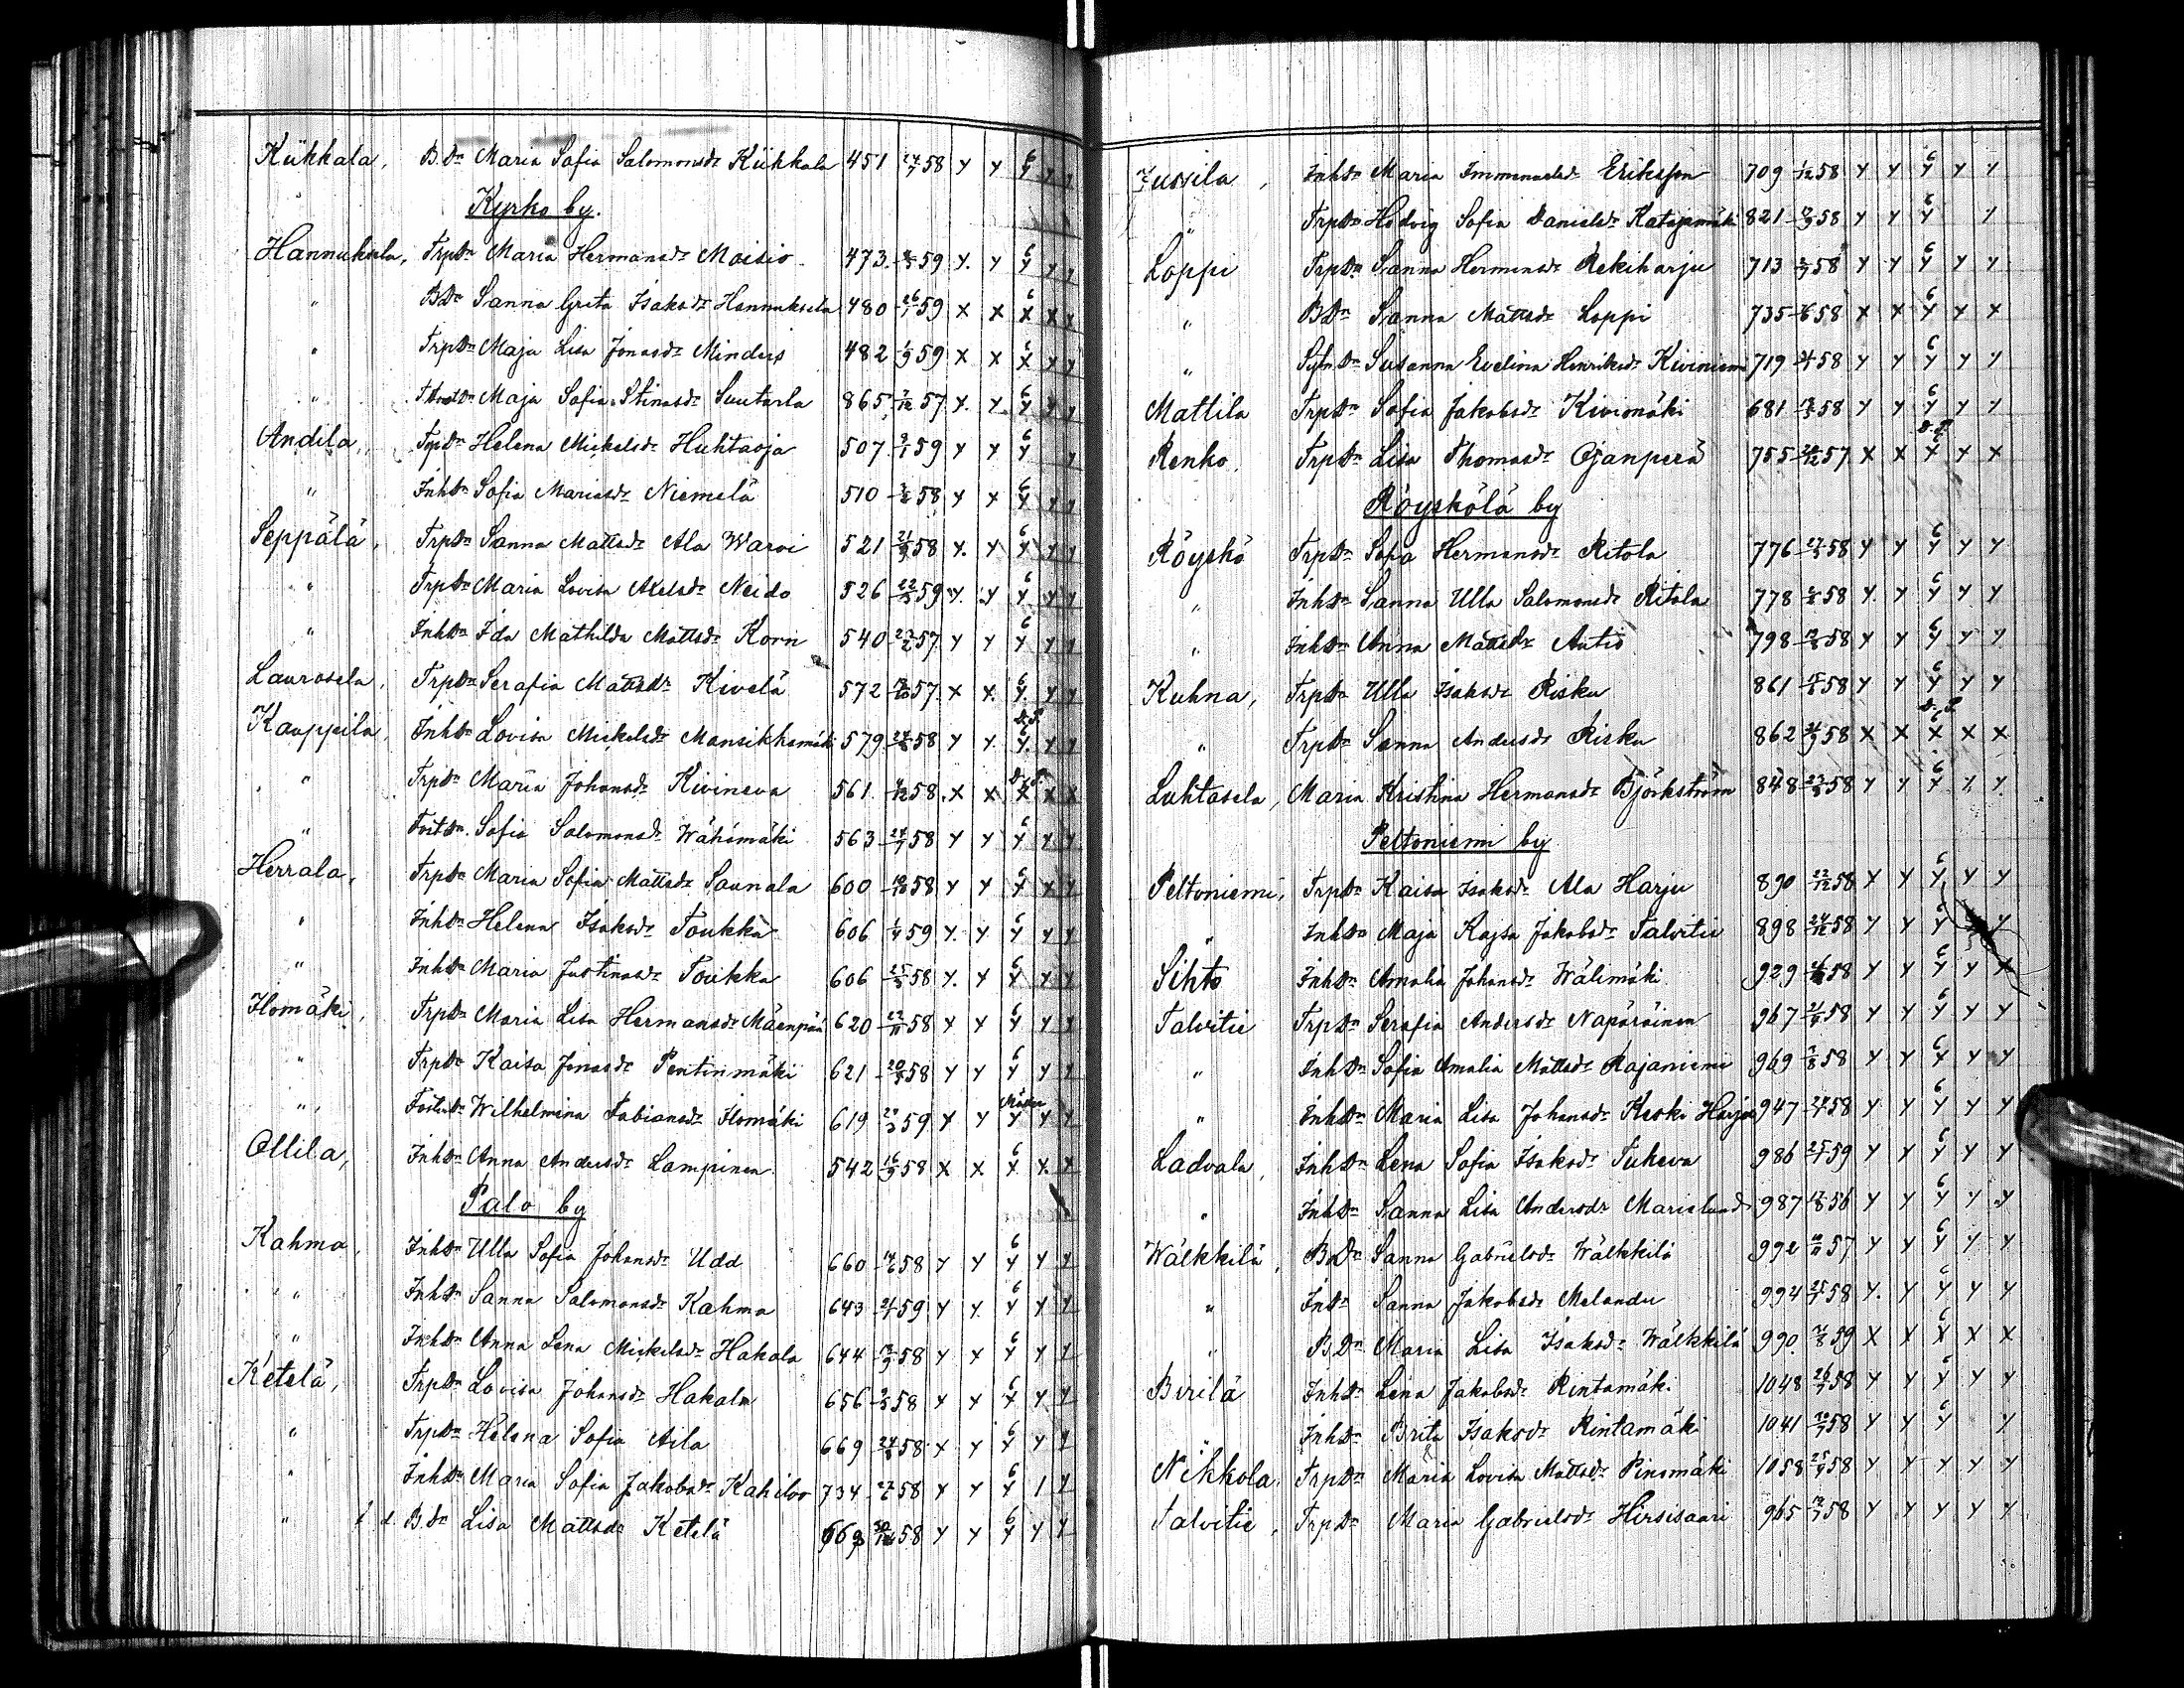 Kükkala, B.Dr Maria Sofia Salomonsdr Kükkala 451 27/7 58 x x 6 x x x
Kyrko by.
Hannuksela, TrpDr Maria Hermansdr Moisio 473 59 x x 6 x x x
" BDr Sanna Greta Isaksdr Hannuksela 480 26/1 59 x x 6 x x x
" TrpDr Maja Lisa Jonasdr Minders 482 1/9 59 x x 6 x x x
" Maja Sofia Stinasdr Suutarla 865 7/12 57 x x 6 x x x
Andila, TrpDr Helena Mickelsdr Huhtaoja 507 59 x x 6 x x
" InhDr Sofia Mariasdr Niemelä 510 58 x x 6 x x x
Seppälä, TrpDr Sanna Mattsdr Ala Warvi 521 58 x x 6 x x x
" TrpDr Maria Lovisa Axelsdr Neido 526 59 x x 6 x x x
" InhDr Ida Mathilda Mattsdr Korn 540 57 x x 6 x x x
Laurosela, TrpDr Serafia Mattsdr Kivelä 572 57 x x 6 x x x
Kauppila, InhDr Lovisa Mickelsdr Mansikkamäki 579 58 x x 6 x x x
" TrpDr Maria Johansdr Kivineva 561 58 x x x x x
" Sofia Salomonsdr Wähämäki 563 27/7 58 x x 6 x x x
Herrala, TrpDr Maria Sofia Mattsdr Saunala 600 19/10 58 x x 6 x x x
" InhDr Helena Isaksdr Toukka 606 1/4 59 x x 6 x x x
" InhDr Maria Justinasdr Toukka 606 58 x x 6 x x x
Ilomäki, TrpDr Maria Lisa Hermansdr Mäenpää 620 22/11 58 x x 6 x x x
" TrpDr Kaisa Jonasdr Penttinmäki 621 58 x x 6 x x x
" Wilhelmina Fabiansdr Ilomäki 619 59 x x x x x
Ollila, InhDr Anna Andersdr Lampinen 542 16/9 58 x x 6 x x x
Palo by
Kahma, InhDr Ulla Sofia Johansdr Udd 660 14/6 58 x x 6 x x x
" InhDr Sanna Salomonsdr Kahma 643 59 x x 6 x x x
" InhDr Anna Lena Mickelsdr Hakola 644 58 x x 6 x x x
Ketelä, TrpDr Lovisa Johansdr Hakala 656 58 x x 6 x x x
" TrpDr Helena Sofia Aila 669 58 x x 6 x x x
" InhDr Maria Sofia Jakobsdr Kahiloo 734 58 x x 6 x 1 x
" B.Dr Lisa Mattsdr Ketelä 669 58 x x 6 x x x
Jussila, InhDr Maria Immanuelsdr Eriksson 709 1/12 58 x x 6 x x x
" TrpDr Hedvig Sofia Danielsdr Katajamäki 821 58 x x 6 x x
Loppi TrpDr Sanna Hermansdr Rekiharju 713 58 x x 6 x x x
" BDr Sanna Mattsdr Loppi 735 58 x x 6 x x x
" Susanna Evelina Henriksdr Kiviniemi 719 58 x x 6 x x x
Mattila TrpDr Sofia Jakobsdr Kivimäki 681 58 x x 6 x x x
Renko, TrpDr Lisa Thomasdr Ojanperä 755 57 x x x x x
Röyskölä by
Röyskö TrpDr Sofia Hermansdr Ritola 776 58 x x 6 x x x
" InhDr Sanna Ulla Salomonsdr Ritola 778 58 x x 6 x x x
" InhDr Anna Mattsdr Autio 798 58 x x 6 x x x
Kuhna, TrpDr Ulla Isaksdr Risku 861 58 x x 6 x x x
" TrpDr Sanna Andersdr Risku 862 58 x x 6 x x x
Luhtasela, Maria Kristina Hermansdr Björkström 848 58 x x 6 x x x
Peltoniemi by
Peltoniemi, TrpDr Kaisa Isaksdr Ala Harju 890 22/12 58 x x 6 x x x
" InhDr Maja Kajsa Jakobsdr Talvitie 898 24/12 58 x x 6 x x
Sihto InhDr Amalia Johansdr Wälimäki 929 58 x x 6 x x x
Talvitie TrpDr Serafia Andersdr Napäräinen 967 58 x x 6 x x x
" InhDr Sofia Amalia Mattsdr Rajaniemi 969 58 x x 6 x x x
" InhDr Maria Lisa Johansdr Keski Harju 947 58 x x 6 x x x
Ladvala, InhDr Lena Sofia Isaksdr Tukeva 986 59 x x 6 x x x
" InhDr Sanna Lisa Andersdr Marielund 987 56 x x 6 x x x
Wälkkilä, BDr Sanna Gabrielsdr Wälkkilä 992 57 x x 6 x x x
" InDr Sanna Jakobsdr Melander 994 58 x x 6 x x x
" BDr Maria Lisa Isaksdr Wälkkilä 990 59 x x 6 x x x
Birilä InhDr Lena Jakobsdr Rintamäki 1048 58 x x 6 x x x
" InhDr Brita Isaksdr Rintamäki 1041 58 x x 6 x x
Nikkola, TrpDr Maria Lovisa Mattsdr Pinomäki 1058 58 x x x x x
Talvitie, TrpDr Maria Gabrielsdr Hirsisaari 965 58 x x x x x